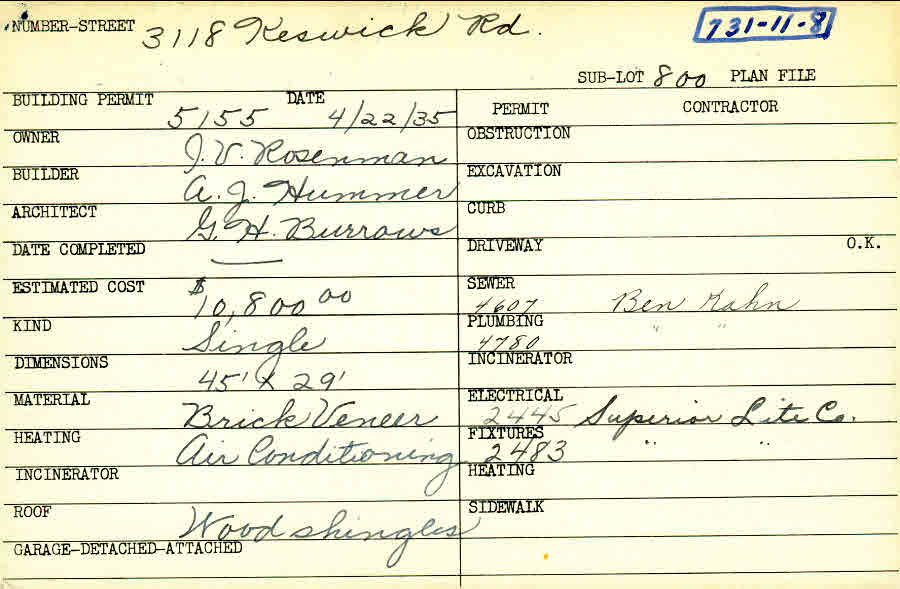 NUMBER-STREET 3118 Keswick Rd. 731-11-8
SUB-LOT 800 PLAN FILE
BUILDING PERMIT 5155 DATE 4/22/35
PERMIT CONTRACTOR
OWNER J. V. Rosenman
OBSTRUCTION
BUILDER A. J. Hummer
EXCAVATION
ARCHITECT G. H. Burrows
CURB
DATE COMPLETED —
DRIVEWAY O.K.
ESTIMATED COST $10,800 00
SEWER 4607 Ben Kahn
KIND Single
PLUMBING 4780 " "
DIMENSIONS 45' X 29'
INCINERATOR
MATERIAL Brick Veneer
ELECTRICAL 2445 Superior Lite Co.
HEATING Air Conditioning
FIXTURES 2483 " "
INCINERATOR
HEATING
ROOF Wood shingles
SIDEWALK
GARAGE-DETACHED-ATTACHED